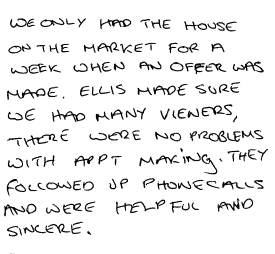 WE ONLY HAD THE HOUSE
ON THE MARKET FOR A
WEEK WHEN AN OFFER WAS
MADE. ELLIS MADE SURE
WE HAD MANY VIENERS,
THERE WERE NO PROBLEMS
WITH APPT MAKING. THEY
FOLLOWED UP PHONECALLS
AND WERE HELPFUL AND
SINCERE.